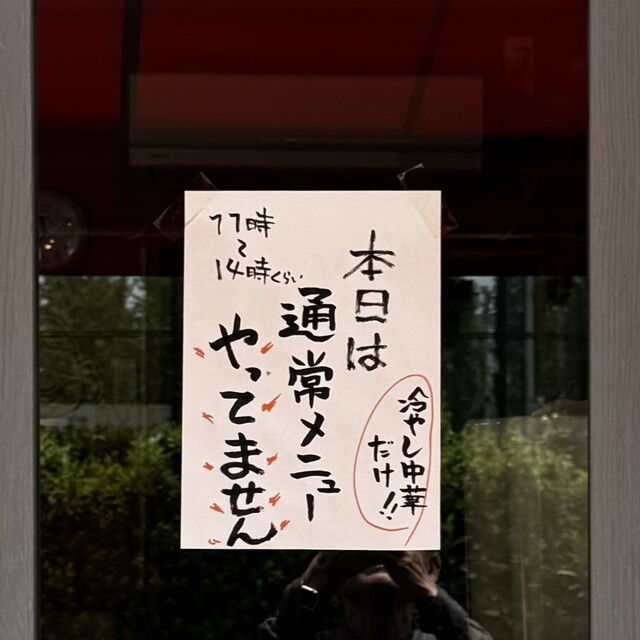 本日は
通常メニュー
やってません
冷やし中華
だけ!!
11時
〜
14時くらい